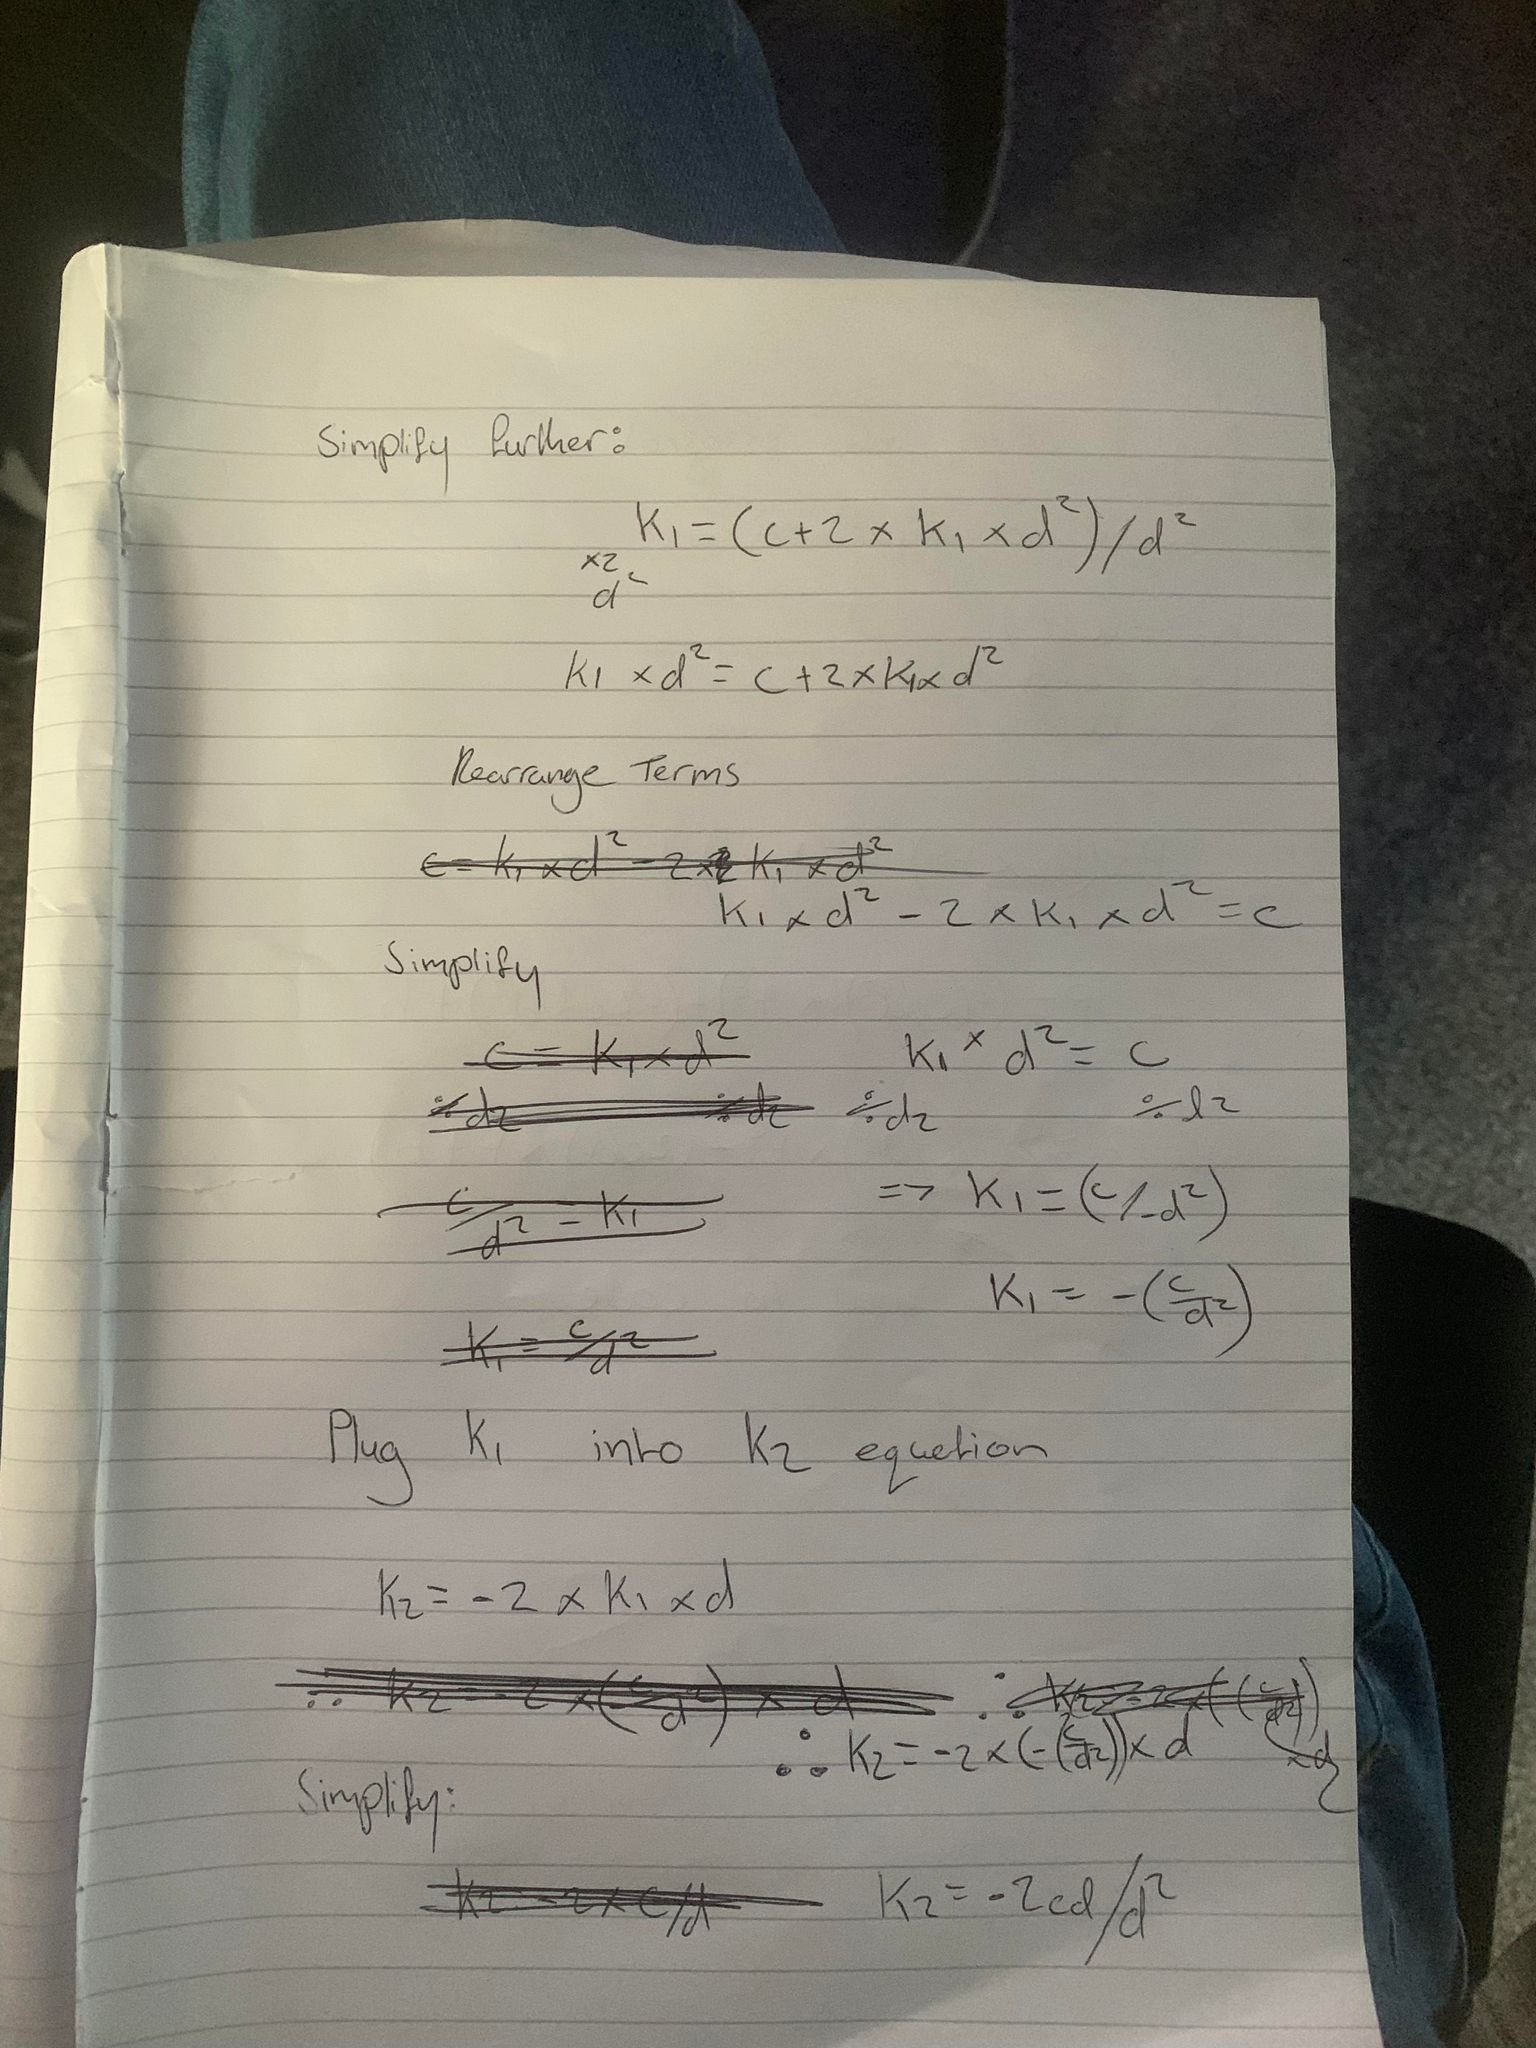 Simplify further:
K₁ = (c+2 × K₁ × d²)/d²
×2
d²
K₁ × d² = c+2×K₁×d²
Rearrange Terms
c = K₁ × d² - 2 × K₁ × d²
K₁ × d² - 2 × K₁ × d² = c
Simplify
c = K₁ × d² K₁ × d² = c
÷d2 ÷d2 ÷d2 ÷d2
c/d² = K₁ => K₁ = (c/-d²)
K₁ = -(c/d²)
K₁ = c/d²
Plug K₁ into K2 equetion
K2 = -2 × K₁ × d
∴ K2 = -2 × (c/d²) × d ∴ K2 = -2 × (-(c/d2)) ×d
∴ K2 = -2 × (-(c/d2)) × d
Simplify:
K2 = -2 × c/d K2 = -2cd/d²